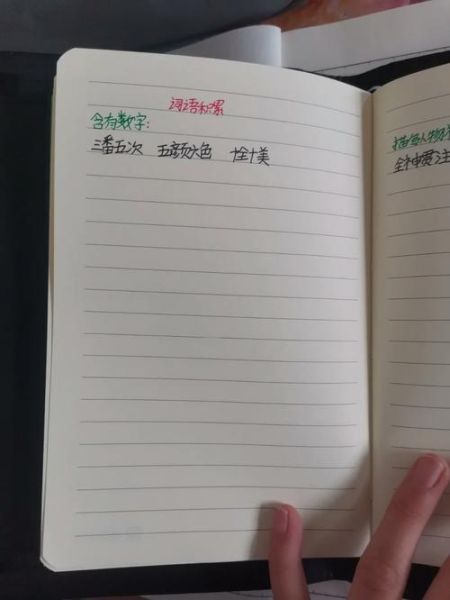 词语积累
含有数字:
三番五次 五颜六色 十全十美
描写人物
全神贯注